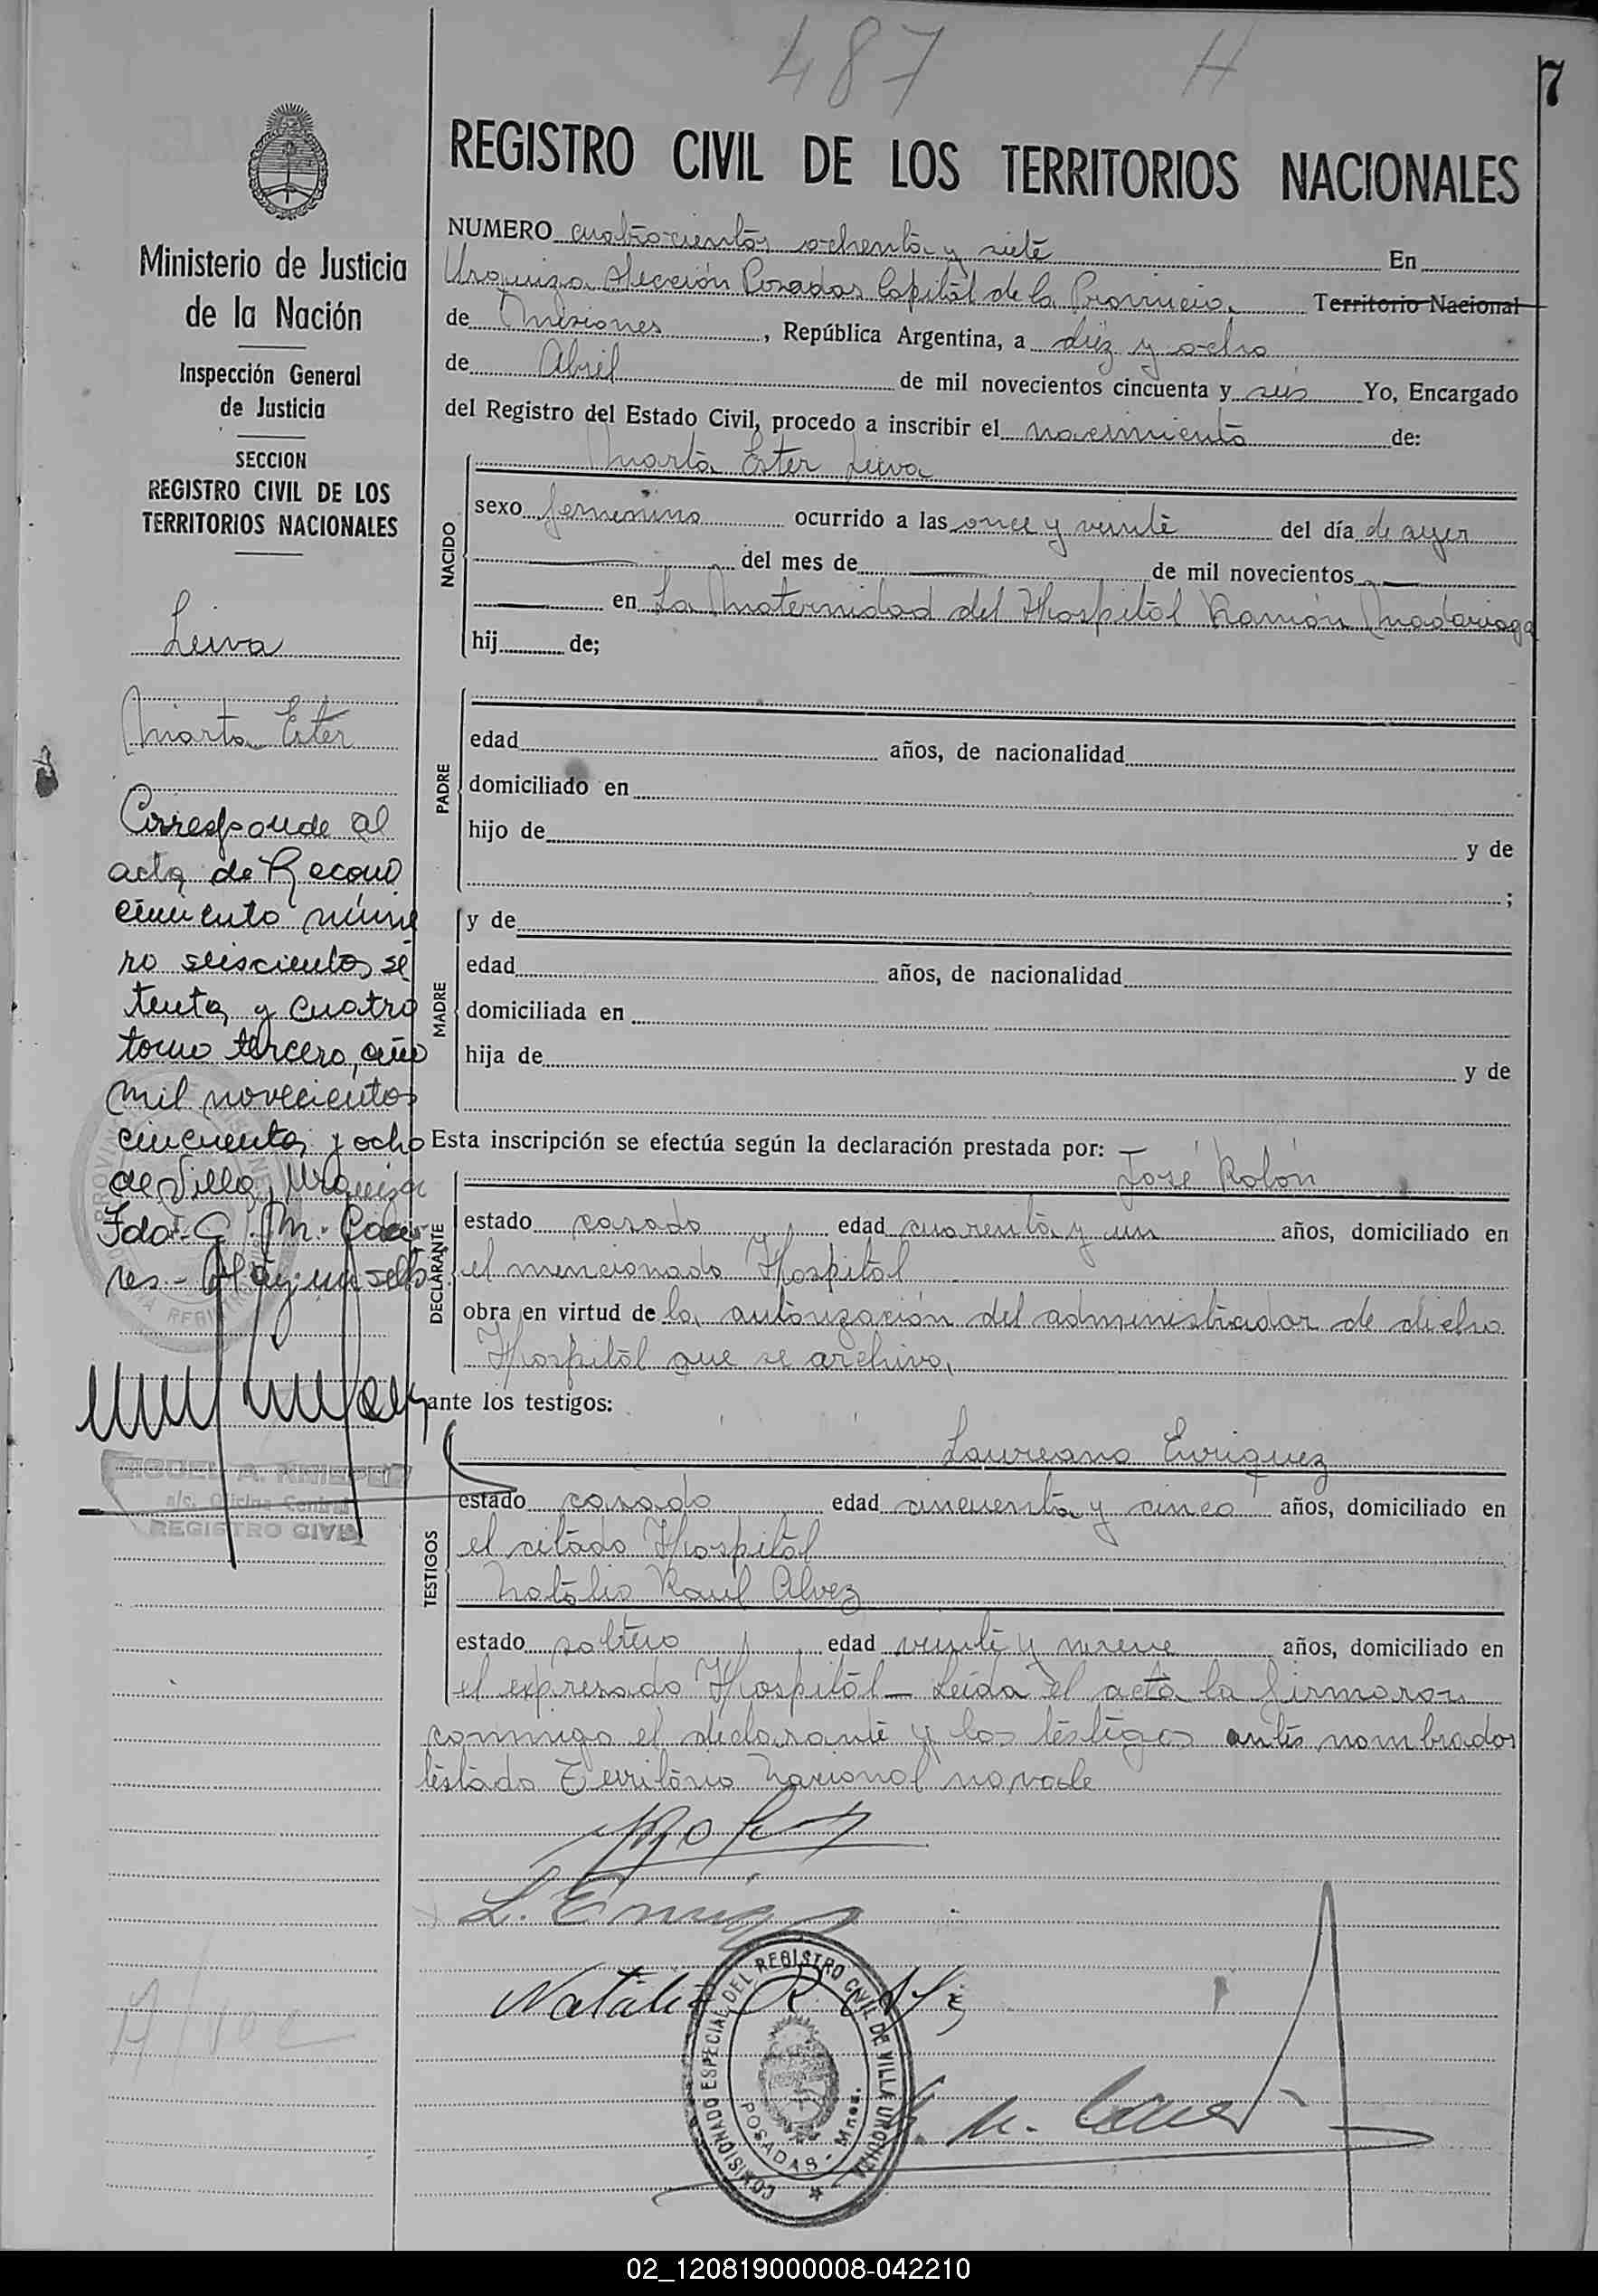 487 H
7
REGISTRO CIVIL DE LOS TERRITORIOS NACIONALES
NUMERO cuatrocientos ochenta y siete En
Urquiza Sección Posadas Capital de la Provincia Territorio Nacional
de Misiones, República Argentina, a diez y ocho
de Abril de mil novecientos cincuenta y seis Yo, Encargado
del Registro del Estado Civil, procedo a inscribir el nacimiento de:
Marta Ester Leiva
NACIDO
sexo femenino ocurrido a las once y veinte del día de ayer
del mes de de mil novecientos
en La Maternidad del Hospital Ramón Madariaga
hij de;
PADRE
edad años, de nacionalidad
domiciliado en
hijo de y de
;
MADRE
y de
edad años, de nacionalidad
domiciliada en
hija de y de
Esta inscripción se efectúa según la declaración prestada por:
José Rolón
DECLARANTE
estado casado edad cuarenta y un años, domiciliado en
el mencionado Hospital
obra en virtud de la autorización del administrador de dicho
Hospital que se archiva,
ante los testigos:
Laureano Enriquez
TESTIGOS
estado casado edad cincuenta y cinco años, domiciliado en
el citado Hospital
Natalio Raul Alvez
estado soltero edad veinte y nueve años, domiciliado en
el expresado Hospital - Leida el acta la firmaron
conmigo el declarante y los testigos antes nombrados
testado Territorio Nacional no vale
L. Enriq
Natalio R. Alvez
COMISIONADO ESPECIAL DEL REGISTRO CIVIL DE VILLA URQUIZA
POSADAS - Mnes.
Ministerio de Justicia
de la Nación
Inspección General
de Justicia
SECCION
REGISTRO CIVIL DE LOS
TERRITORIOS NACIONALES
Leiva
Marta Ester
Corresponde al
acta de Recono
cimiento núme
ro seiscientos se
tenta y cuatro
tomo tercero, año
mil novecientos
cincuenta y ocho
de Villa Urquiza
Fdo. C. M. Cace
res - Hay un sello
MIGUEL A.
a/c. Oficina Central
REGISTRO CIVIL
02_120819000008-042210